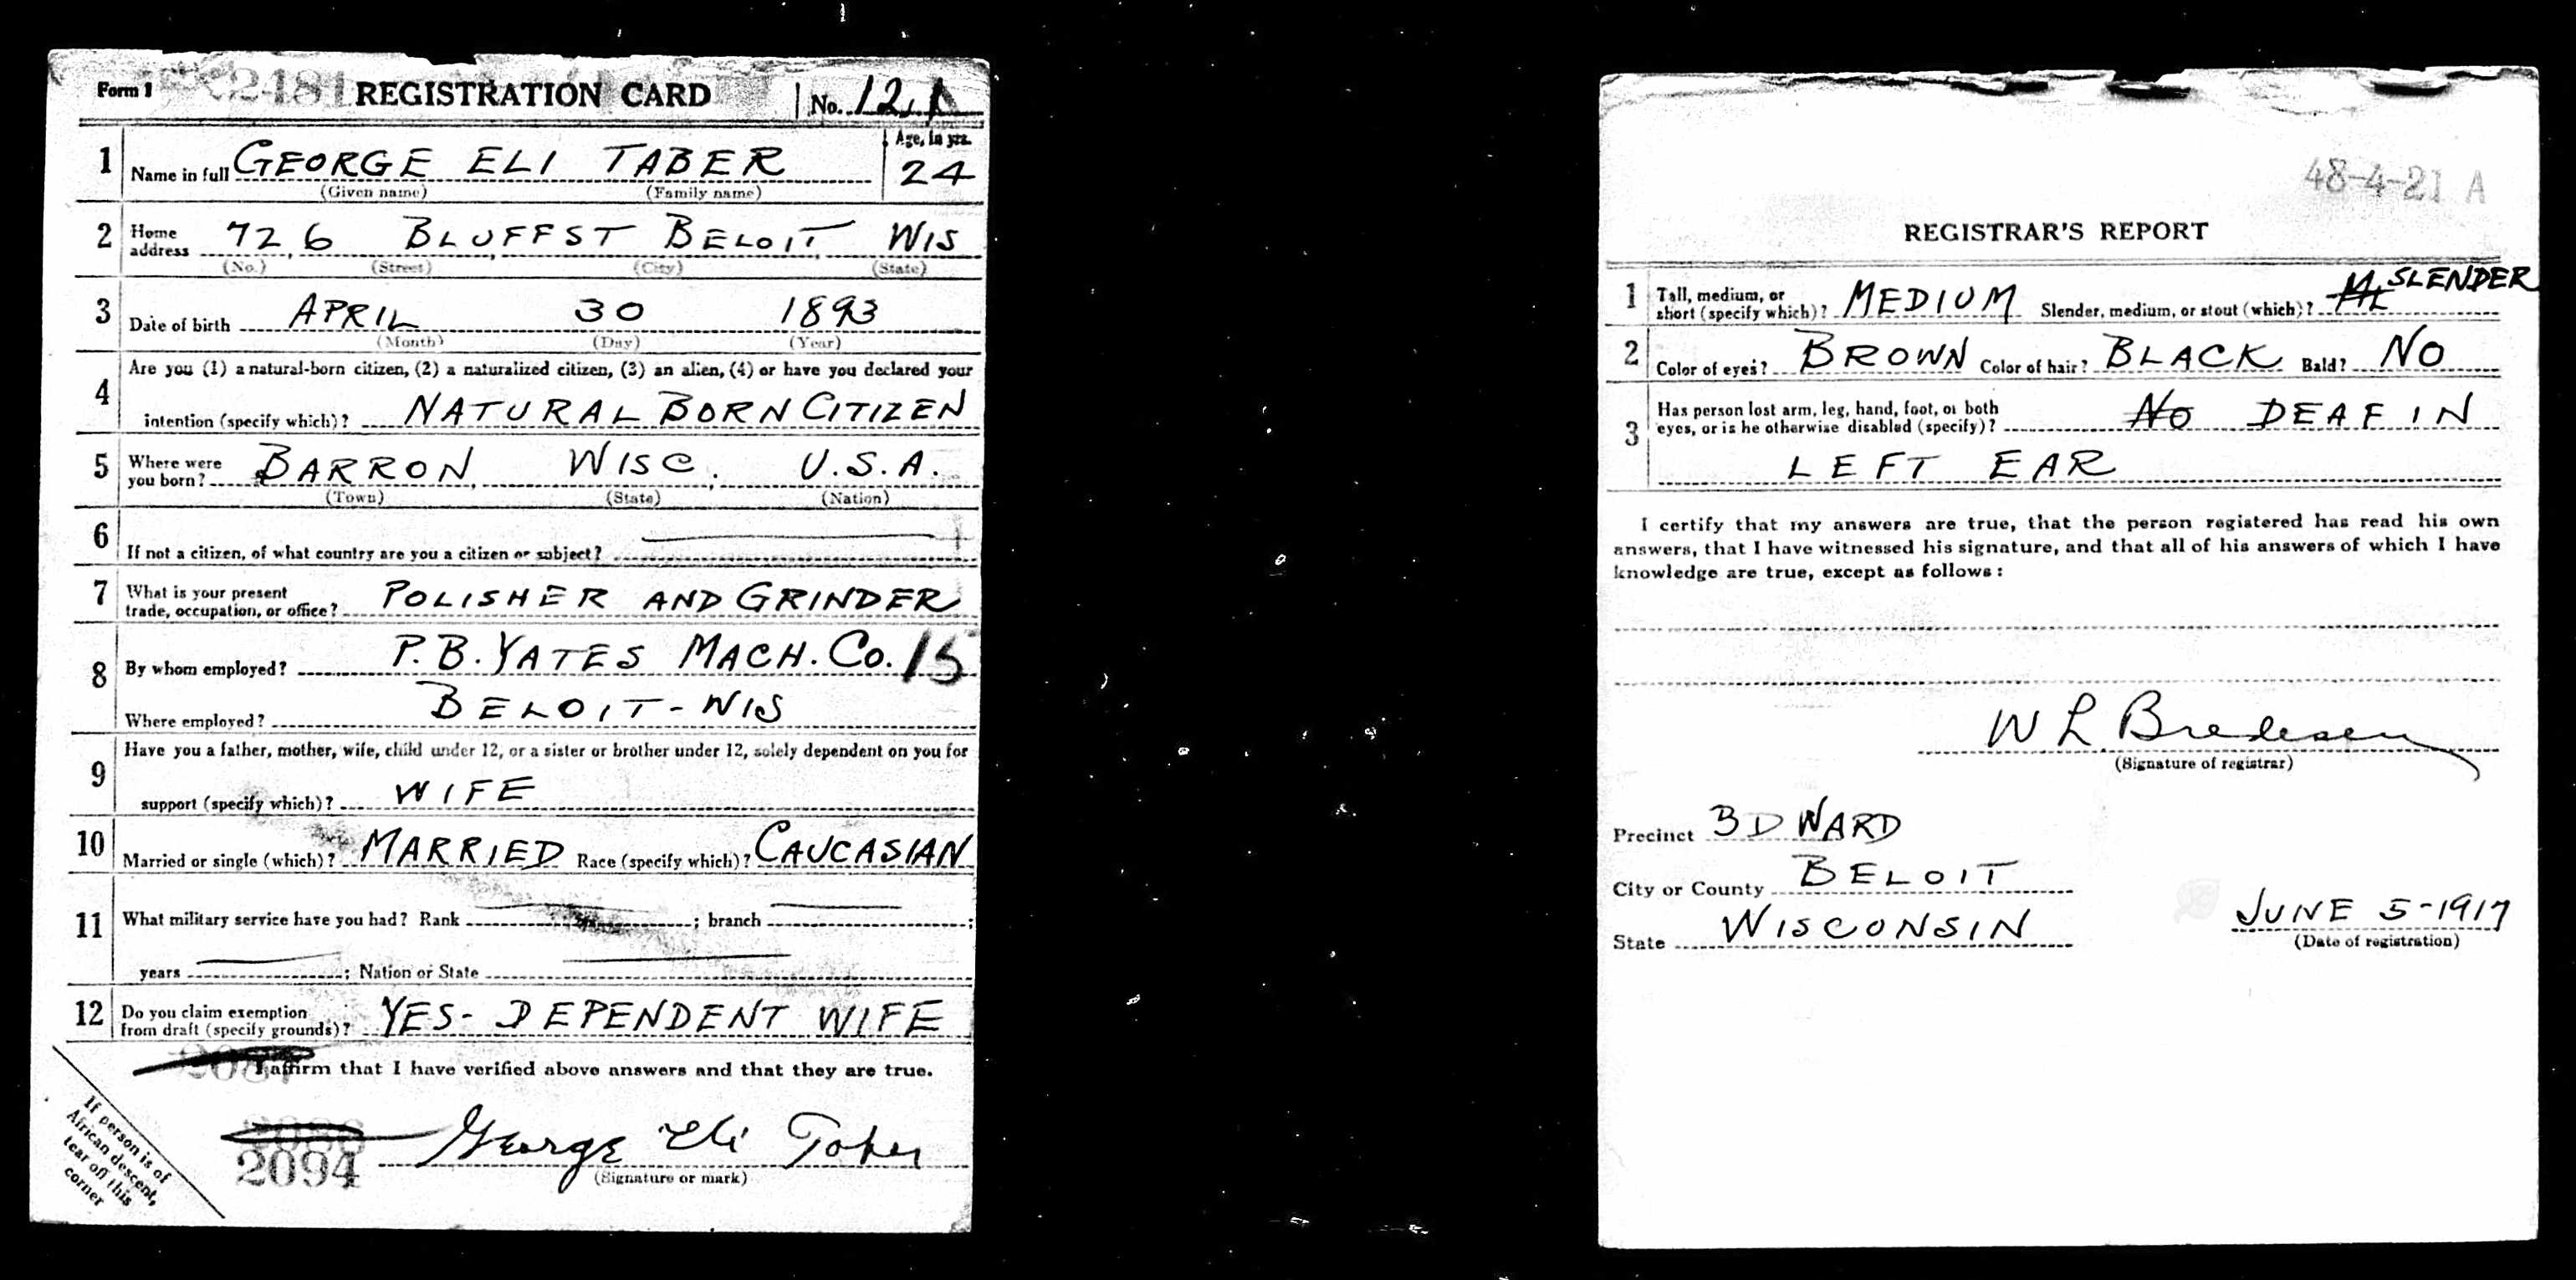 Form 1 2481 REGISTRATION CARD No. 121
1 Name in full GEORGE ELI TABER Age, in yrs. 24
(Given name) (Family name)
2 Home address 726 BLUFF ST BELOIT WIS
(No.) (Street) (City) (State)
3 Date of birth APRIL 30 1893
(Month) (Day) (Year)
4 Are you (1) a natural-born citizen, (2) a naturalized citizen, (3) an alien, (4) or have you declared your
intention (specify which)? NATURAL BORN CITIZEN
5 Where were you born? BARRON WISC. U.S.A.
(Town) (State) (Nation)
6 If not a citizen, of what country are you a citizen or subject?
7 What is your present trade, occupation, or office? POLISHER AND GRINDER
8 By whom employed? P.B. YATES MACH. CO. 15
Where employed? BELOIT-WIS
9 Have you a father, mother, wife, child under 12, or a sister or brother under 12, solely dependent on you for
support (specify which)? WIFE
10 Married or single (which)? MARRIED Race (specify which)? CAUCASIAN
11 What military service have you had? Rank ; branch ;
years ; Nation or State
12 Do you claim exemption from draft (specify grounds)? YES- DEPENDENT WIFE
I affirm that I have verified above answers and that they are true.
2094 George Eli Taber
(Signature or mark)
If person is of
African descent,
tear off this
corner
48-4-21 A
REGISTRAR'S REPORT
1 Tall, medium, or short (specify which)? MEDIUM Slender, medium, or stout (which)? SLENDER
2 Color of eyes? BROWN Color of hair? BLACK Bald? NO
3 Has person lost arm, leg, hand, foot, or both eyes, or is he otherwise disabled (specify)? No DEAF IN
LEFT EAR
I certify that my answers are true, that the person registered has read his own
answers, that I have witnessed his signature, and that all of his answers of which I have
knowledge are true, except as follows:
W L Bredesen
(Signature of registrar)
Precinct 3D WARD
City or County BELOIT
State WISCONSIN
JUNE 5-1917
(Date of registration)